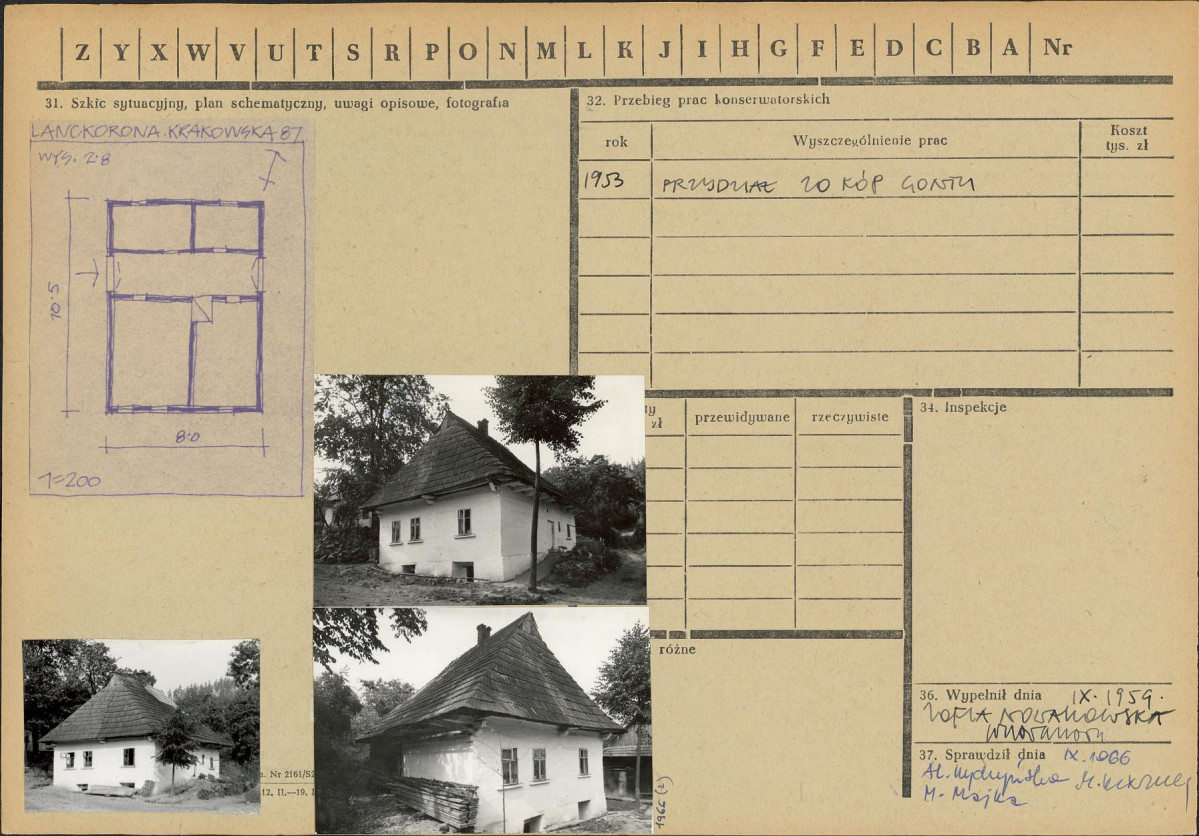 Z Y X W V U T S R P O N M L K J I H G F E D C B A Nr
31. Szkic sytuacyjny, plan schematyczny, uwagi opisowe, fotografia
LANCKORONA. KRAKOWSKA 87
WYS. 2.8
10.5
8.0
1=200
32. Przebieg prac konserwatorskich
rok Wyszczególnienie prac Koszt
tys. zł
1953 PRZYDZIAŁ 20 KÓP GONTU
ty
zł
przewidywane rzeczywiste
34. Inspekcje
różne
36. Wypełnił dnia IX. 1959.
ZOFIA NOWAKOWSKA
37. Sprawdził dnia IX. 1966
M. Majka
Nr 2161/S2
12, II.—19.
1966 (2)